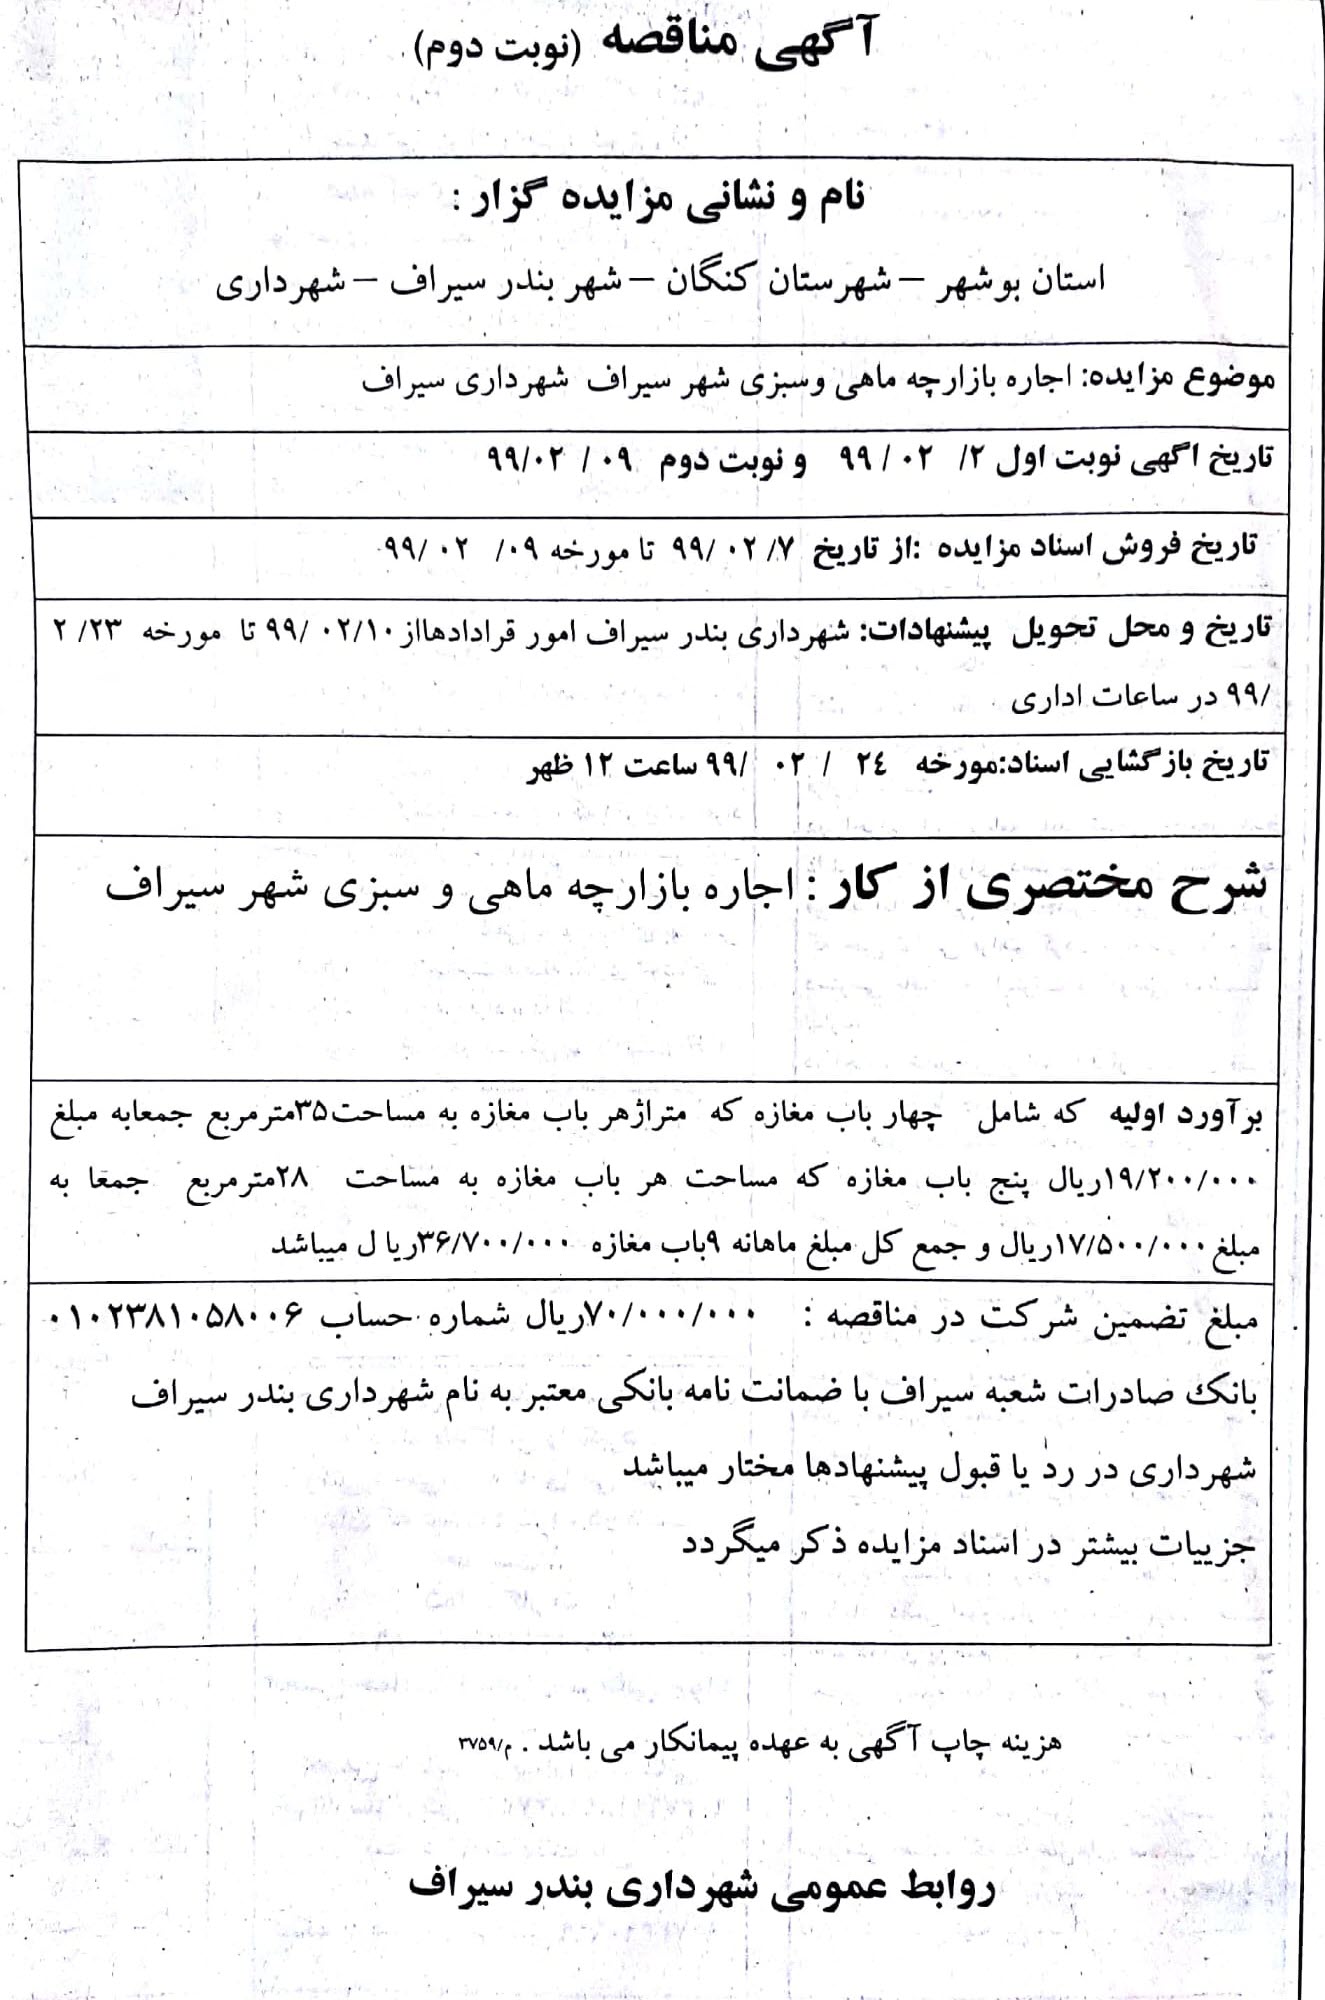 آگهی مناقصه (نوبت دوم)
نام و نشانی مزایده گزار :
استان بوشهر – شهرستان کنگان – شهر بندر سیراف – شهرداری
موضوع مزایده: اجاره بازارچه ماهی وسبزی شهر سیراف شهرداری سیراف
تاریخ اگهی نوبت اول ۲/ ۰۲ / ۹۹ و نوبت دوم ۰۹ / ۹۹/۰۲
تاریخ فروش اسناد مزایده :از تاریخ ۷/ ۰۲ /۹۹ تا مورخه ۰۹/ ۰۲ /۹۹
تاریخ و محل تحویل پیشنهادات: شهرداری بندر سیراف امور قرادادهااز ۰۲/۱۰ /۹۹ تا مورخه ۲۳/ ۲
/۹۹ در ساعات اداری
تاریخ بازگشایی اسناد:مورخه ۲٤ / ۰۲ /۹۹ ساعت ۱۲ ظهر
شرح مختصری از کار : اجاره بازارچه ماهی و سبزی شهر سیراف
برآورد اولیه که شامل چهار باب مغازه که متراژهر باب مغازه به مساحت۳۵مترمربع جمعابه مبلغ
۱۹/۲۰۰/۰۰۰ریال پنج باب مغازه که مساحت هر باب مغازه به مساحت ۲۸مترمربع جمعا به
مبلغ ۱۷/۵۰۰/۰۰۰ریال و جمع کل مبلغ ماهانه ۹باب مغازه ۳۶/۷۰۰/۰۰۰ریا ل میباشد
مبلغ تضمین شرکت در مناقصه : ۷۰/۰۰۰/۰۰۰ریال شماره حساب ۰۱۰۲۳۸۱۰۵۸۰۰۶
بانک صادرات شعبه سیراف با ضمانت نامه بانکی معتبر به نام شهرداری بندر سیراف
شهرداری در رد یا قبول پیشنهادها مختار میباشد
جزییات بیشتر در اسناد مزایده ذکر میگردد
هزینه چاپ آگهی به عهده پیمانکار می باشد . م/۳۷۵۹
روابط عمومی شهرداری بندر سیراف